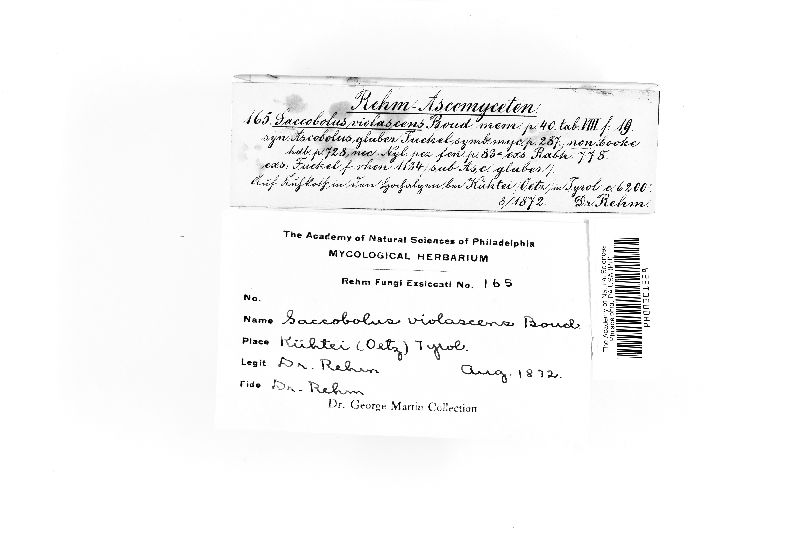 Rehm-Ascomyceten.
165. Saccobolus violascens Boud mem p. 40. tab. VIII f. 19.
syn. Ascobolus glaber Fuckel symb. myc. p. 287, non Cooke
hdb. p. 728, nec. Nyl. pez. fen. p. 83 exs. Rabh. 775.
exs. Fuckel f. rhen 1834, sub Asc. glaber!).
Auf Kuhkoth in den Hochalpen bei Kühtei, Oetz, in Tyrol c. 6200'.
8/1872. Dr. Rehm.
The Academy of Natural Sciences of Philadelphia
MYCOLOGICAL HERBARIUM
Rehm Fungi Exsiccati No. 165
No.
Name Saccobolus violascens Boud
Place Kühtei (Oetz) Tyrol.
Legit Dr. Rehm Aug. 1872.
Fide Dr. Rehm
Dr. George Martin Collection
The Academy of Natural Sciences
Philadelphia, PA USA (PH)